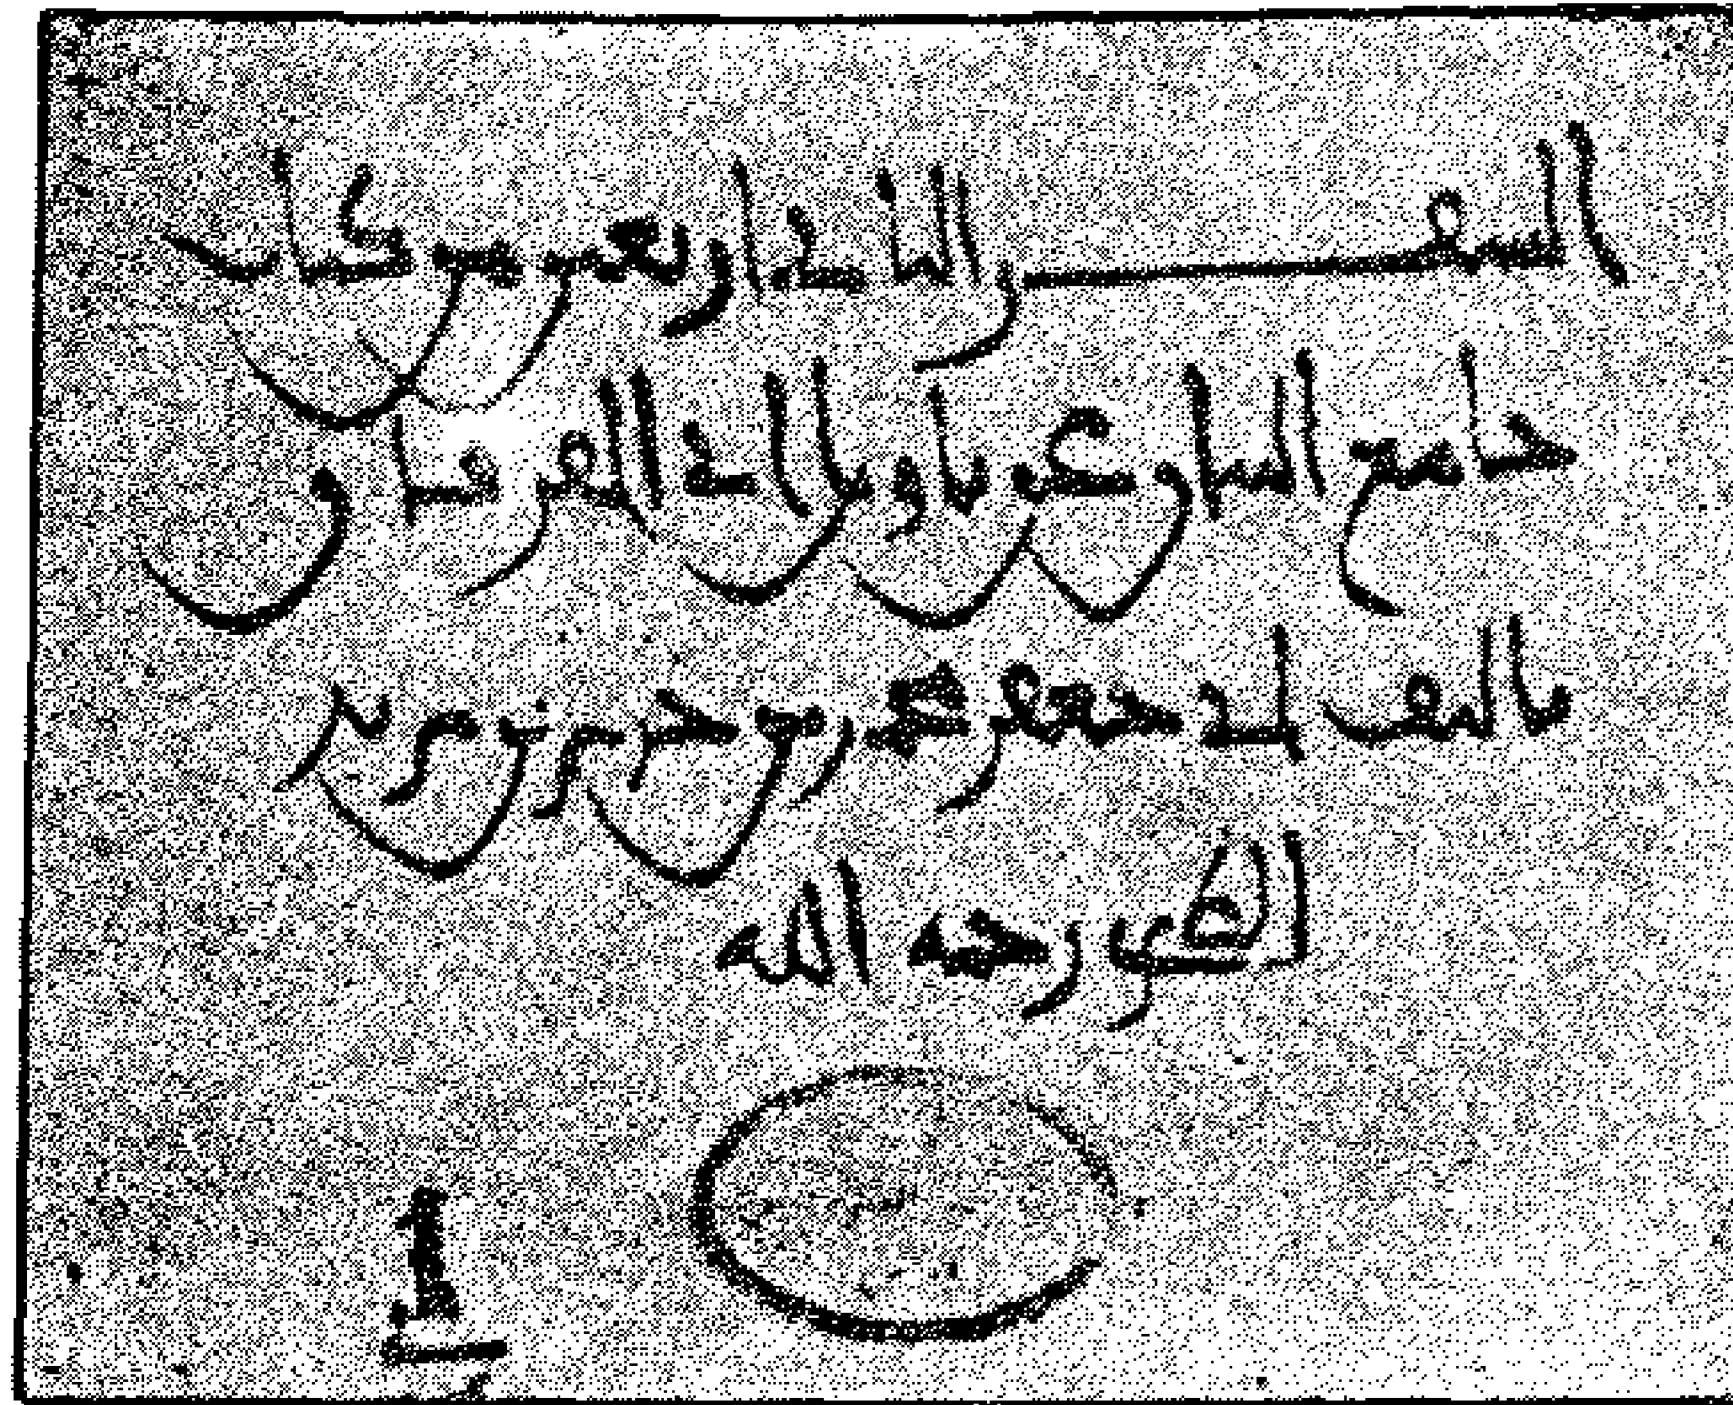 السفر الثالث والاربعين من كتاب
جامع البيان عن تاويل آي الفرقان
تاليف ابي جعفر محمد بن جرير بن يزيد
الطبري رحمه الله